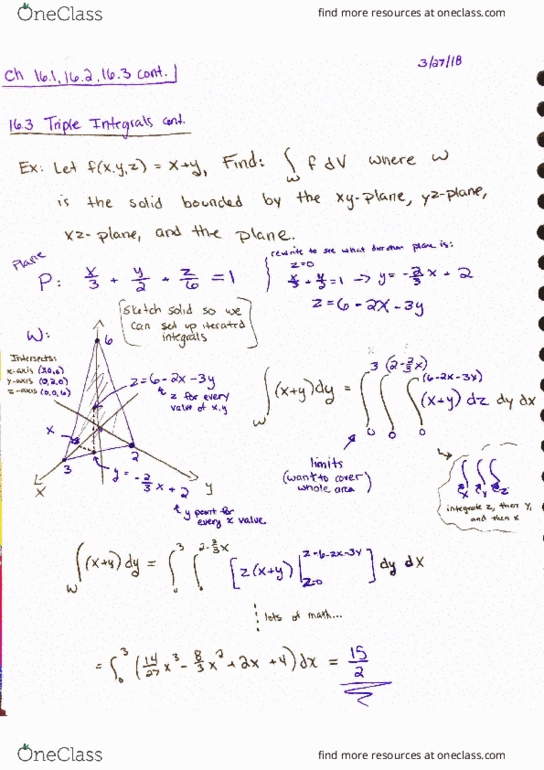 OneClass find more resources at oneclass.com
3/27/18
Ch 16.1, 16.2, 16.3 cont.
16.3 Triple Integrals cont.
Ex: Let f(x,y,z) = x+y, Find: ∫_W f dV where W
is the solid bounded by the xy-plane, yz-plane,
xz-plane, and the plane.
Plane
P: x/3 + y/2 + z/6 = 1
rewrite to see what direction plane is:
z=0
x/3 + y/2 = 1 → y = -2/3 x + 2
z = 6 - 2x - 3y
[Sketch solid so we
can set up iterated
integrals]
W:
Intersects:
x-axis (3,0,0)
y-axis (0,2,0)
z-axis (0,0,6)
6
z = 6 - 2x - 3y
z for every
value of x,y
x
3
2
x
y
y = -2/3 x + 2
y point for
every x value.
∫_W (x+y) dy = ∫_0^3 ∫_0^(2-2/3x) ∫_0^(6-2x-3x) (x+y) dz dy dx
limits
(want to cover)
whole area
x y z
integrate z, then y,
and then x
∫_W (x+y) dy = ∫_0^3 ∫_0^(2-2/3x) [z(x+y) |_(z=0)^(z=6-2x-3y)] dy dx
lots of math...
= ∫_0^3 (14/27 x^3 - 8/3 x^2 + 2x + 4) dx = 15/2
OneClass find more resources at oneclass.com